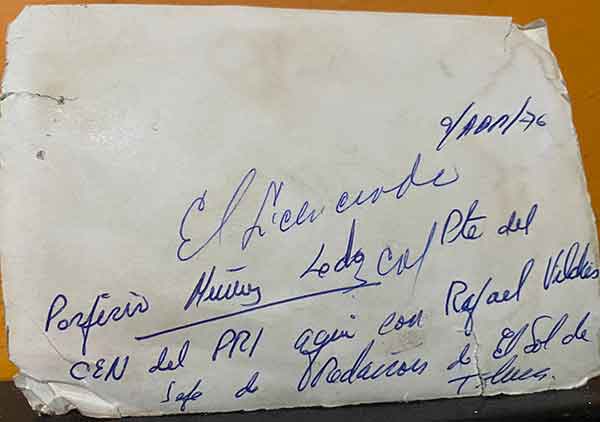 9/ABR/76
El Licenciado
Porfirio Muñoz Ledo Pte del
CEN del PRI aquí con Rafael Vilchis
Jefe de Redacción de El Sol de
Toluca.